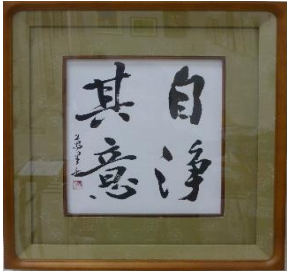 自淨
其意